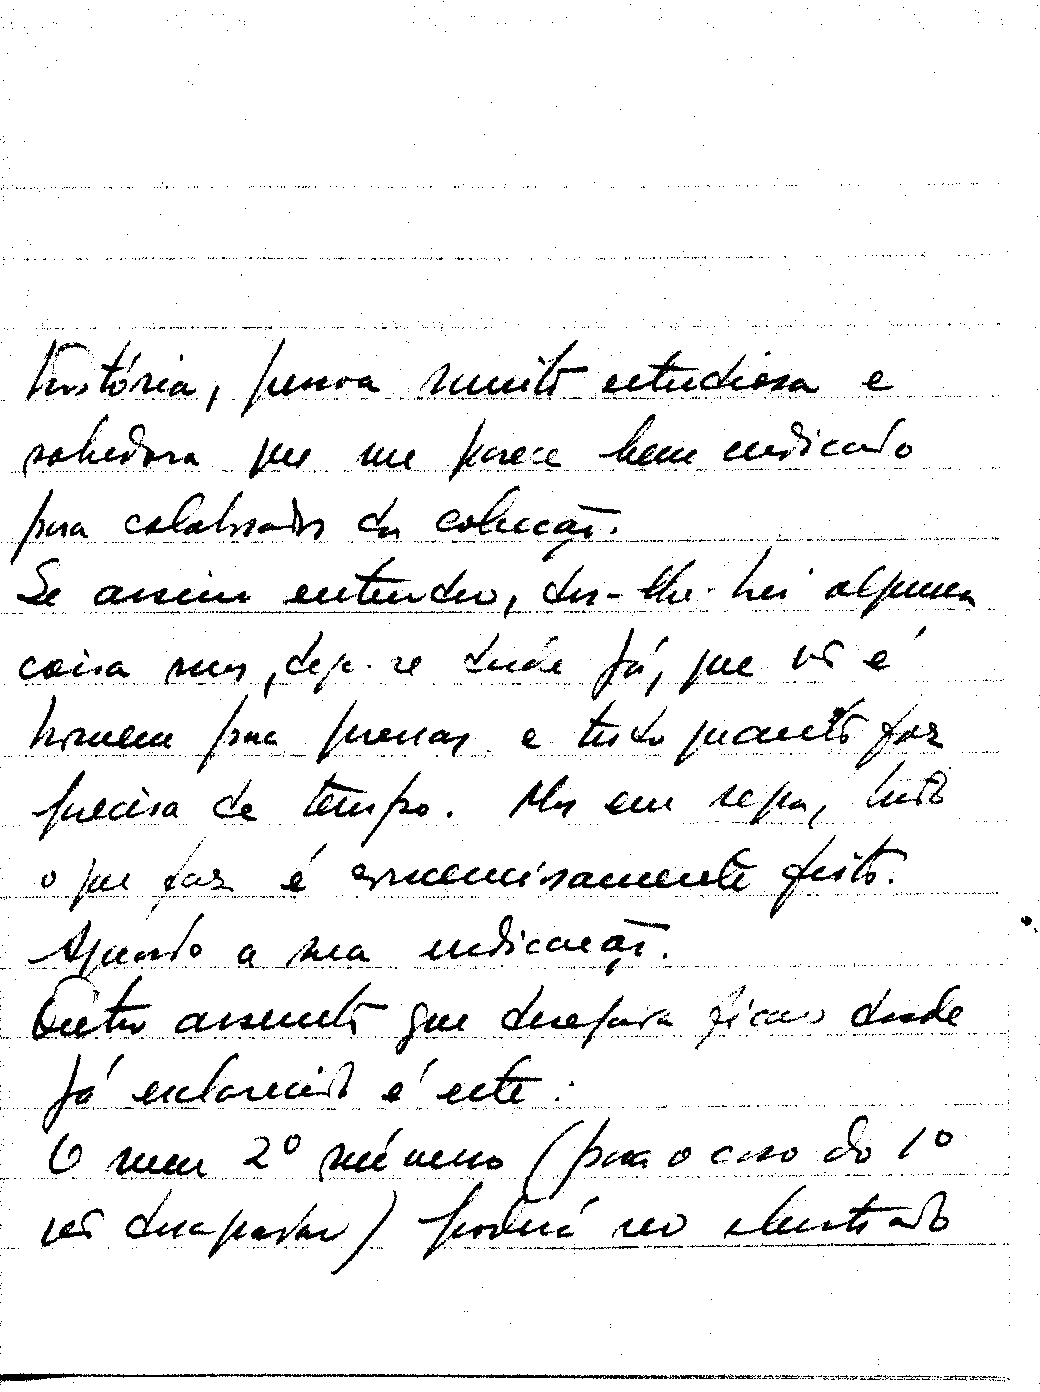 história, pessoa muito estudiosa e
sabedora que me parece bem indicado
para colaborador da colecção.
Se assim entender, dir-lhe-hei alguma
coisa mas, diga-se desde já, que não é
homem para pressas e tudo quanto faz
precisa de tempo. Mas em regra, tudo
o que faz é conscienciosamente feito.
Aguardo a sua indicação.
Outro assunto que desejava ficar desde
já esclarecido é este:
O meu 2º número (para o caso do 1º
não desagradar) poderá ser ilustrado